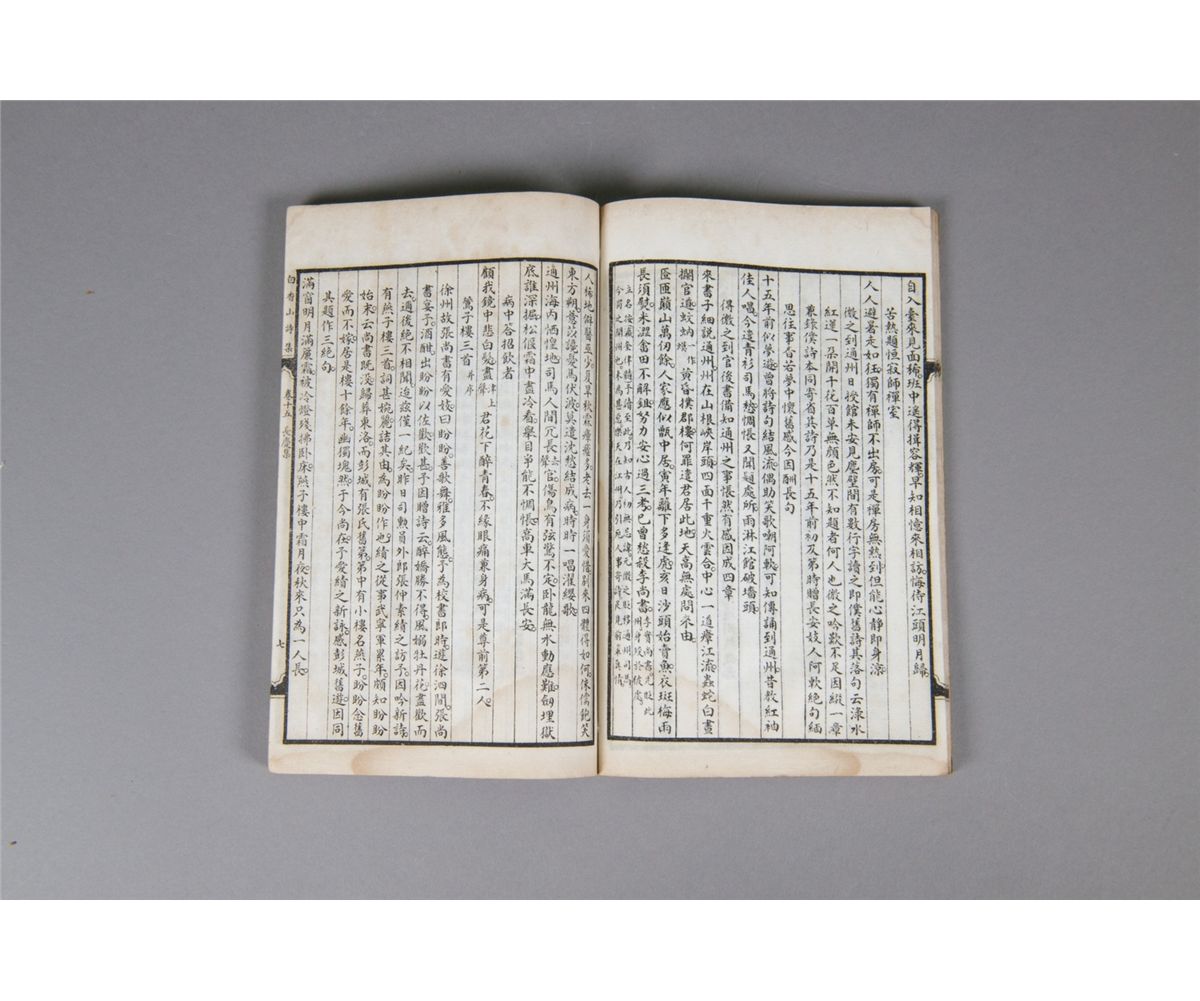 自入臺來見面稀班中遙得揖容輝早知相憶來相訪悔待江頭明月歸
苦熱題恒寂師禪室
人人避暑走如狂獨有禪師不出房可是禪房無熱到但能心靜即身涼
微之到通州日授館未安見塵壁間有數行字讀之即僕舊詩其落句云淥水
紅蓮一朵開千花百草無顏色然不知題者何人也微之吟歎不足因綴一章
兼錄僕詩本同寄省其詩乃是十五年前初及第時贈長安妓人阿軟絕句緬
思往事杳若夢中懷舊感今因酬長句
十五年前似夢遊曾將詩句結風流偶助笑歌嘲阿軟可知傳誦到通州昔教紅袖
佳人唱今遣青衫司馬愁惆悵又聞題處所雨淋江館破墻頭
得微之到官後書備知通州之事悵然有感因成四章
來書子細說通州州在山根峽岸頭四面千重火雲合中心一道瘴江流蟲蛇白晝
攔官道蚊蚋一作蟆黃昏撲郡樓何罪遣君居此地天高無處問來由
匼匝巔山萬仞餘人家應似甑中居寅年籬下多逢虎亥日沙頭始賣魚衣斑梅雨
長須熨米澀畬田不解鉏努力安心過三考已曾愁殺李尚書李實尚書先貶此州身歿於彼處
人稀地僻醫巫少夏旱秋霖瘴瘧多老去一身須愛惜別來四體得如何侏儒飽笑
東方朔薏苡讒憂馬伏波莫遣沈愁結成病時時一唱濯纓歌
通州海內恓惶地司馬人間冗長去聲官傷鳥有弦驚不定臥龍無水動應難劒埋獄
底誰深掘松偃霜中盡冷看舉目爭能不惆悵高車大馬滿長安
病中答招飲者
顧我鏡中悲白髮盡津上聲君花下醉青春不緣眼痛兼身病可是尊前第二人
鷰子樓三首并序
徐州故張尚書有愛妓曰盼盼善歌舞雅多風態予為校書郎時遊徐泗間張尚
書宴予酒酣出盼盼以佐歡歡甚予因贈詩云醉嬌勝不得風嫋牡丹花盡歡而
去邇後絕不相聞迨茲僅一紀矣昨日司勲員外郎張仲素繢之訪予因吟新詩
有燕子樓三首詞甚婉麗詰其由為盼盼作也繢之從事武寧軍累年頗知盼盼
始末云尚書既歿歸葬東洛而彭城有張氏舊第第中有小樓名燕子盼盼念舊
愛而不嫁居是樓十餘年幽獨塊然于今尚在予愛繢之新詠感彭城舊遊因同
其題作三絕句
滿窗明月滿簾霜被冷燈殘拂臥床燕子樓中霜月夜秋來只為一人長
白香山詩集
卷十五 長慶集
七